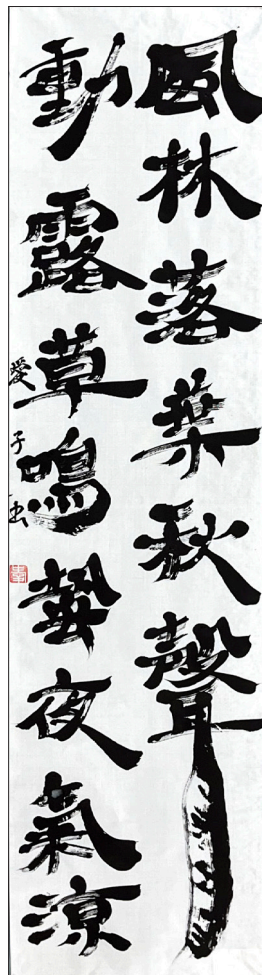 風林落葉秋聲
動露草鳴蛩夜氣涼
愛子書